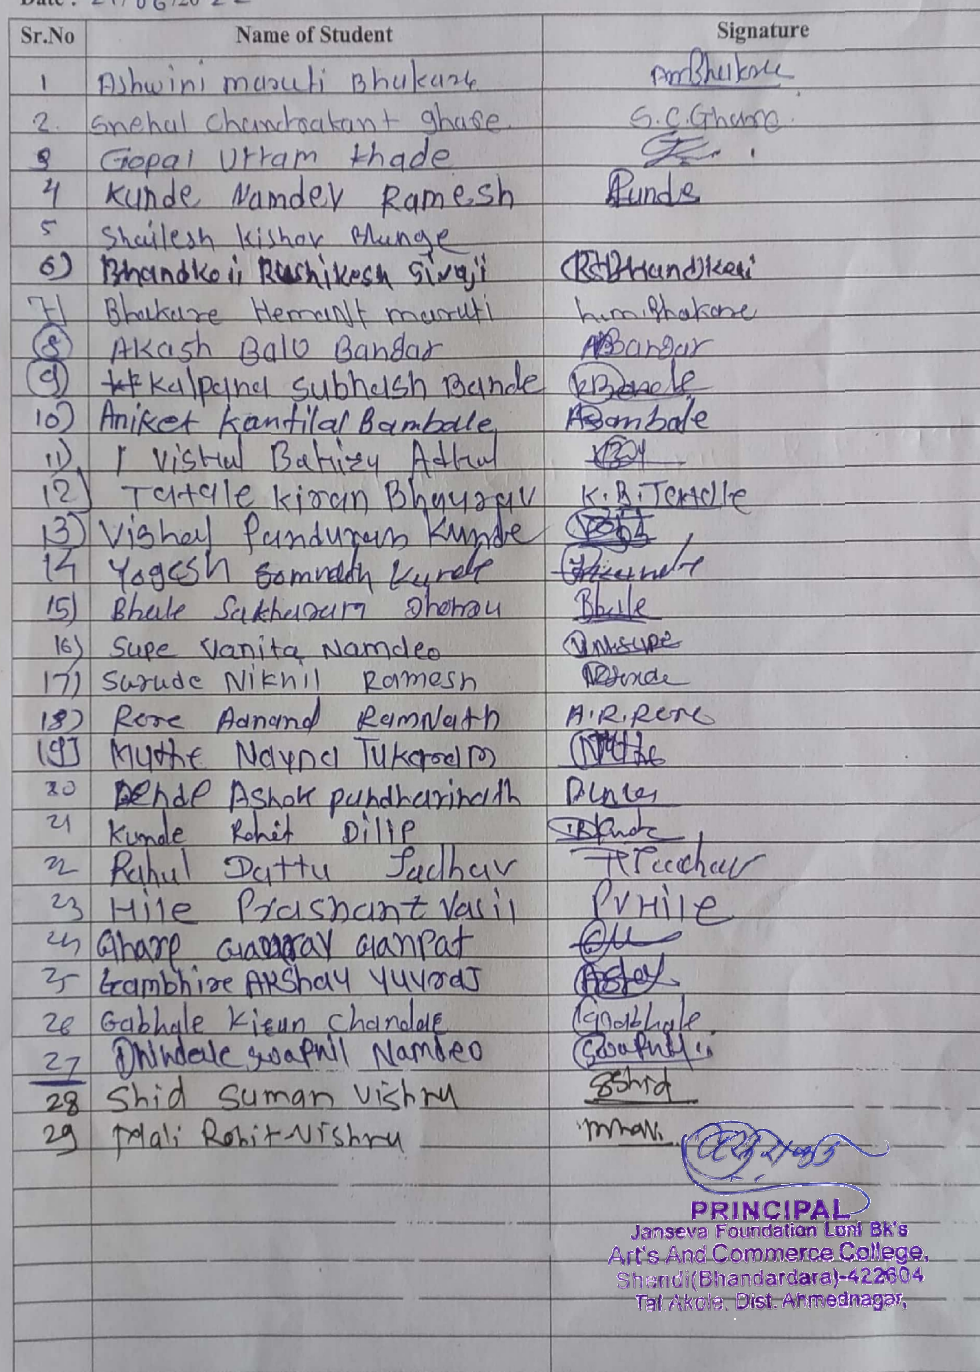 Sr.No Name of Student Signature
1 Ashwini maruti Bhukare AmBhukare
2. Snehal Chandrakant ghare. S.C.Ghare
3 Gopal Uttam Khade
4 Kunde Namdev Ramesh Kunde
5 Shailesh Kishor
6) Rushikesh Sivaji
7) Bhakare Hemant maruti h.m.Bhakare
8 Akash Balu Bangar ABangar
9 Kalpana Subhash Bande KBande
10) Aniket Kantilal Bambale ABambale
11)
12) Tatale Kiran Bhaurav K.B.Tatale
13) Vishal Pandurang Kunde
14 Yogesh Somnath Kunde
15) Bhale Sakharam Bhale
16) Supe Vanita Namdeo V.N.supe
17) Surude Nikhil Ramesh
18) Rere Aanand RamNath A.R.Rere
19) Muthe Nayna Tukaram
20 Dende Ashok pandharinath
21 Kunde Rohit Dilip
22 Rahul Dattu Jadhav
23 Hile Prashant Vasil PVHile
24 Ghare Gaurav Ganpat
25 Gambhire Akshay Yuvraj
26 Gabhale Kiran Gabhale
27 Dhindale Swapnil Namdeo Swapnil
28 Shid Suman Vishnu SShid
29 Mali Rohit Vishnu
PRINCIPAL
Janseva Foundation Loni Bk's
Art's And Commerce College,
Shendi(Bhandardara)-422604
Tal Akole, Dist. Ahmednagar,